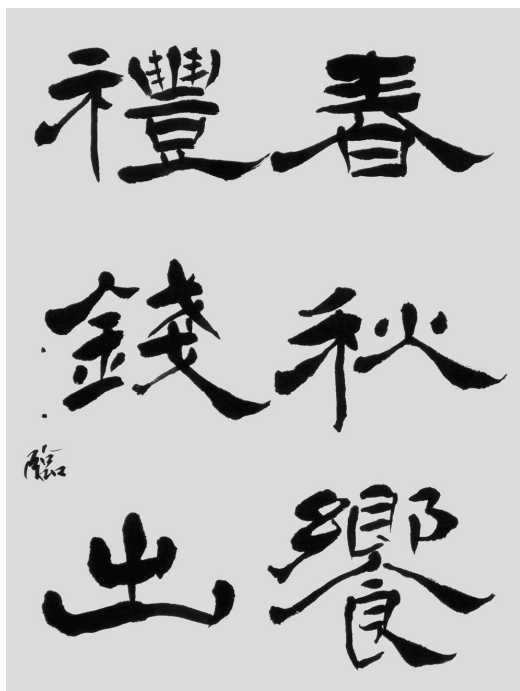 春秋饗
禮錢出
臨